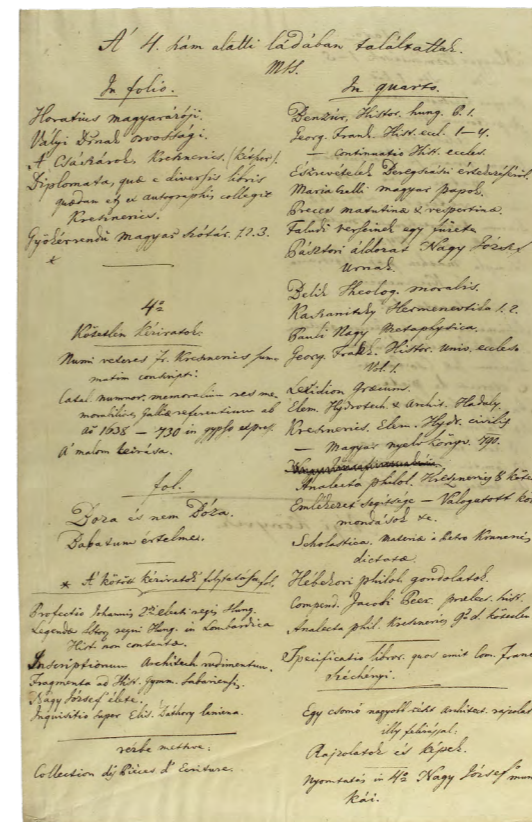 A' 4. szám alatti ládában találtattak.
MSS.
In folio.
Horatius magyarázóji.
Vályi orvossági.
A Császárok. Kresznerics. (kétszer).
Diplomata, quae e diversis libris
quaedam etg ex autographis collegit
Kresznerics.
Gyökérrendü magyar szótár. 1.2.3.
*
4o
Kötetlen kéziratok.
Numi veteres Fr. Kresznerics
matim conscripti:
Catal. numor. memoralium res me-
morabiles Galliae referentium ab
Ao 1638 – 730 in gypso
A' malom leirása.
fol.
Doza és nem Dóza.
értelmes.
* A' kötött kéziratok folytatása fol.
Profectio Johannis electi regis Hung.
Legenda Storum regni Hung. in Lombardica
Hist. non contenta.
Inscriptionum Architect. rudimentum.
Fragmenta ad Hist. Gymn. Sabariensis.
Nagy József élete.
Inquisitio super Elis. Báthory
Collection des Pièces d' Ecriture.
In quarto.
Benzúr, Histor. hung. 6. 1.
Georg. Frank. Hist. eccl. 1–4.
— continuatio Hist. eccles.
Észrevételek Deregszászi
Mariazelli magyar papok.
Preces matutinae & vespertinae.
Faludi verseinek egy füzete
Pásztori áldozat Nagy József
Urnak.
Theolog. moralis.
Hermeneutika 1. 2.
Pauli Nagy Metaphysica.
Georg. Frank. Histor. univ. eccles.
Vol. 1.
Lexidion Graecum.
Elem. Hydrotech. & Archit. Hadaly.
Kresznerics. Elem. Hydr. civilis
— Magyar nyelv könyv. 790.
Analecta philol. Kresznerics 8
Emlékezet segítsége — Válogatott
mondások &c.
Scholastica. materia a
dictata.
Hébekori philol. gondolatok.
Compend. Jacobi Beer. hist.
Analecta phil. Kresznerics
Specificatio libror. quos emit Com. Franc.
Széchényi.
Egy csomó nagyobb Architect. rajzolat
illy felirással:
Rajzolatok és képek.
Nyomtatás in 4o Nagy József mun
kái.